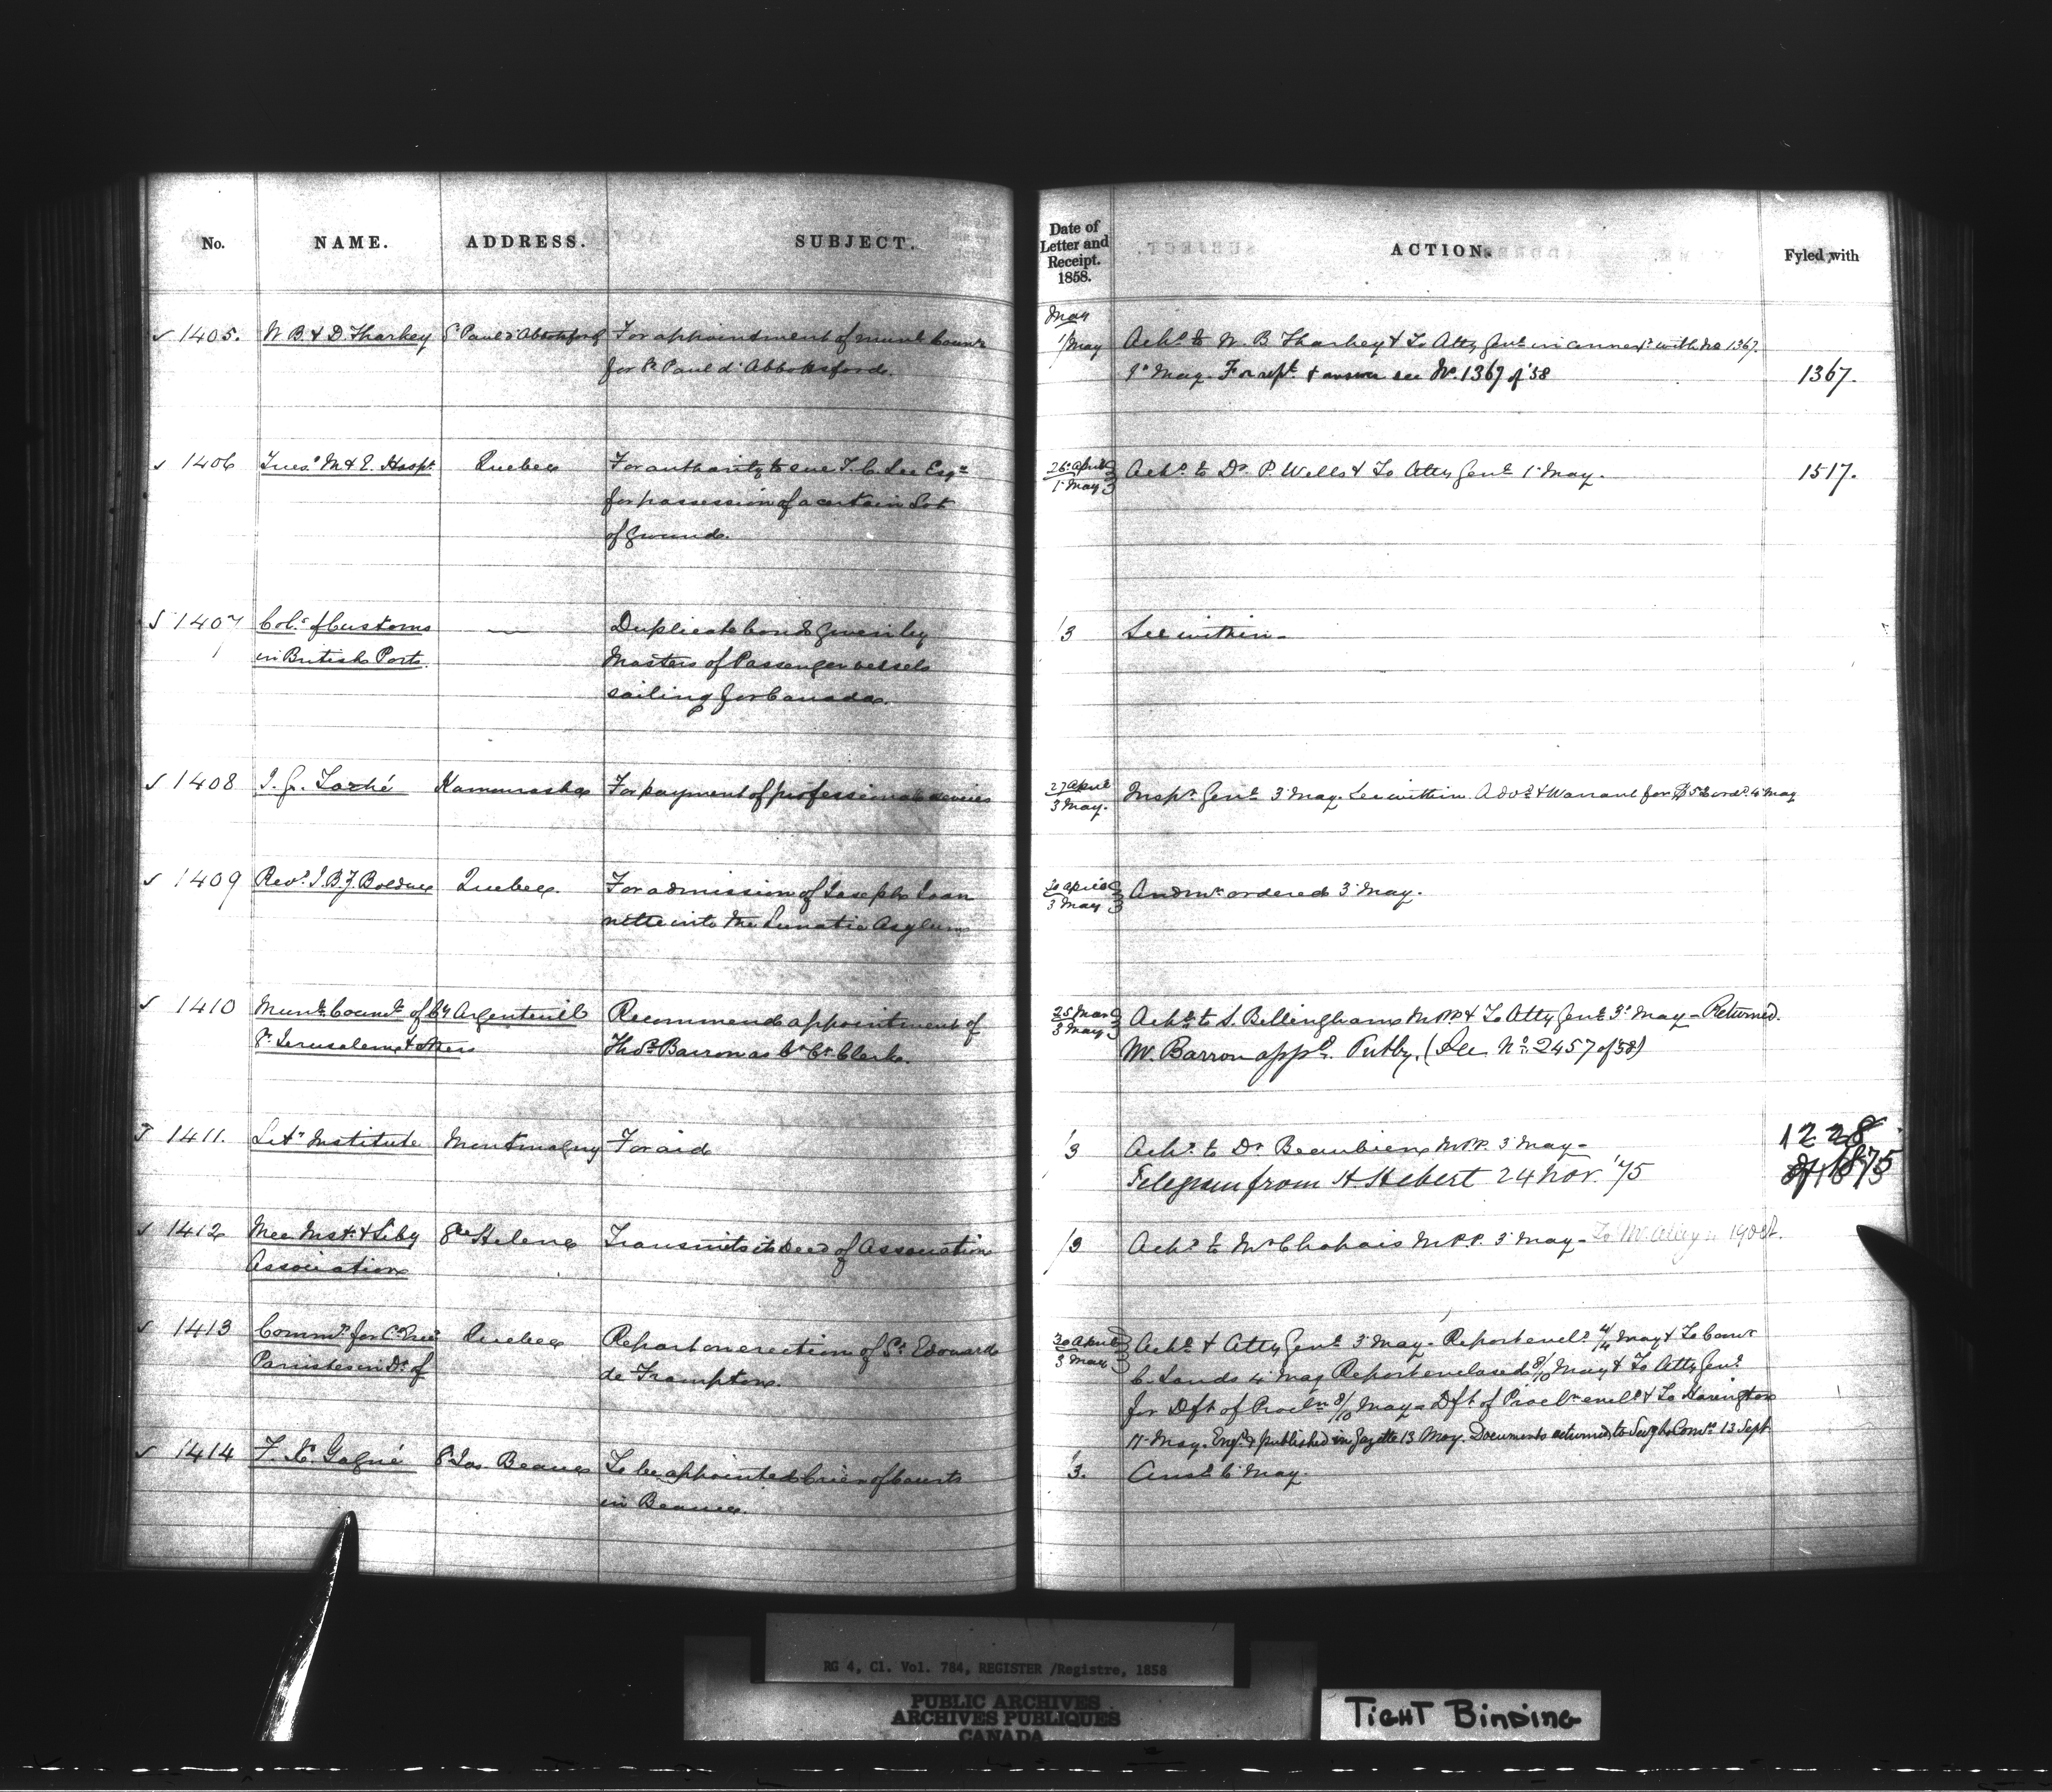 No. NAME. ADDRESS. SUBJECT. Date of Letter and Receipt. 1858. ACTION. Fyled with
May
✓ 1405. W. B. & D. Tharkey St Paul d'Abbotsford For appointment of Munl. Counr 1/May Ackd. to W. B. Tharkey & To Atty Genl. in connexn with No 1367.
for St. Paul d'Abbotsford. 1st May. For rept. & answer see No. 1367 of '58 1367.
✓ 1406 Treasr M & E. Hospl. Quebec For authority to sue T. C. Lee Esqre 26 April 1 May Ackd. to Dr. P. Wells & To Atty Genl. 1 May. 1517.
for possession of a certain Lot
of ground.
✓ 1407 Colrs of Customs — Duplicate bonds given by /3 See within
in British Ports. Masters of Passenger vessels
sailing for Canada.
✓ 1408 J. G. Taché Kamouraska For payment of professional services 27 April 3 May. Inspr. Genl. 3 May. See within. Advd. & Warrant for ordd. 4 May
✓ 1409 Revd. J. B. Z. Bolduc Quebec. For admission of Joseph Joan 30 April 3 May Andmn ordered 3 May.
nette into the Lunatic Asylum
✓ 1410 Munl. Counl. of Cy Argenteuil Recommends appointment of 25 Mar 3 May Ackd. to S. Bellingham M.P.P. & To Atty Genl. 3d May – Returned.
St. Jerusalem & others Thos. Barron as Ct. Clerk. Mr. Barron appd. Putby. (See No. 2457 of '58)
1411. Lity. Institute Montmagny For aid /3 Ackd. to Dr Beaubien M.P.P. 3 May – 1228
Telegram from H. Hebert 24 Nov. '75 of 1875
✓ 1412 Mec. Inst. & Liby Ste Helene Transmits its Deed of Association /3 Ackd. to Mr Chapais M.P.P. 3 May – To Mr. Alleyn 19 Oct.
Association
✓ 1413 Commrs for Cl Erec Quebec Report on erection of St. Edouard 30 April 3 May Ackd. & Atty Genl. 3 May – Report encld. 4/4 May & To Comr
Parishes in Dt. of de Frampton. C. Lands 4 May Report enclosed 8/10 May & To Atty Genl.
for Dft of Procln 8/10 May – Dft of Procln encld & To Harington
11 May. Engd. & published in Gazette 13 May. Documents returned to Comrs 13 Sept.
✓ 1414 F. X. Gagné St. Jos. Beauce To be appointed Crier of Courts /3. Ansd. 6 May.
in Beauce.
RG 4, Cl. Vol. 784, REGISTER /Registre, 1858
PUBLIC ARCHIVES
ARCHIVES PUBLIQUES
CANADA
TIGHT BINDING